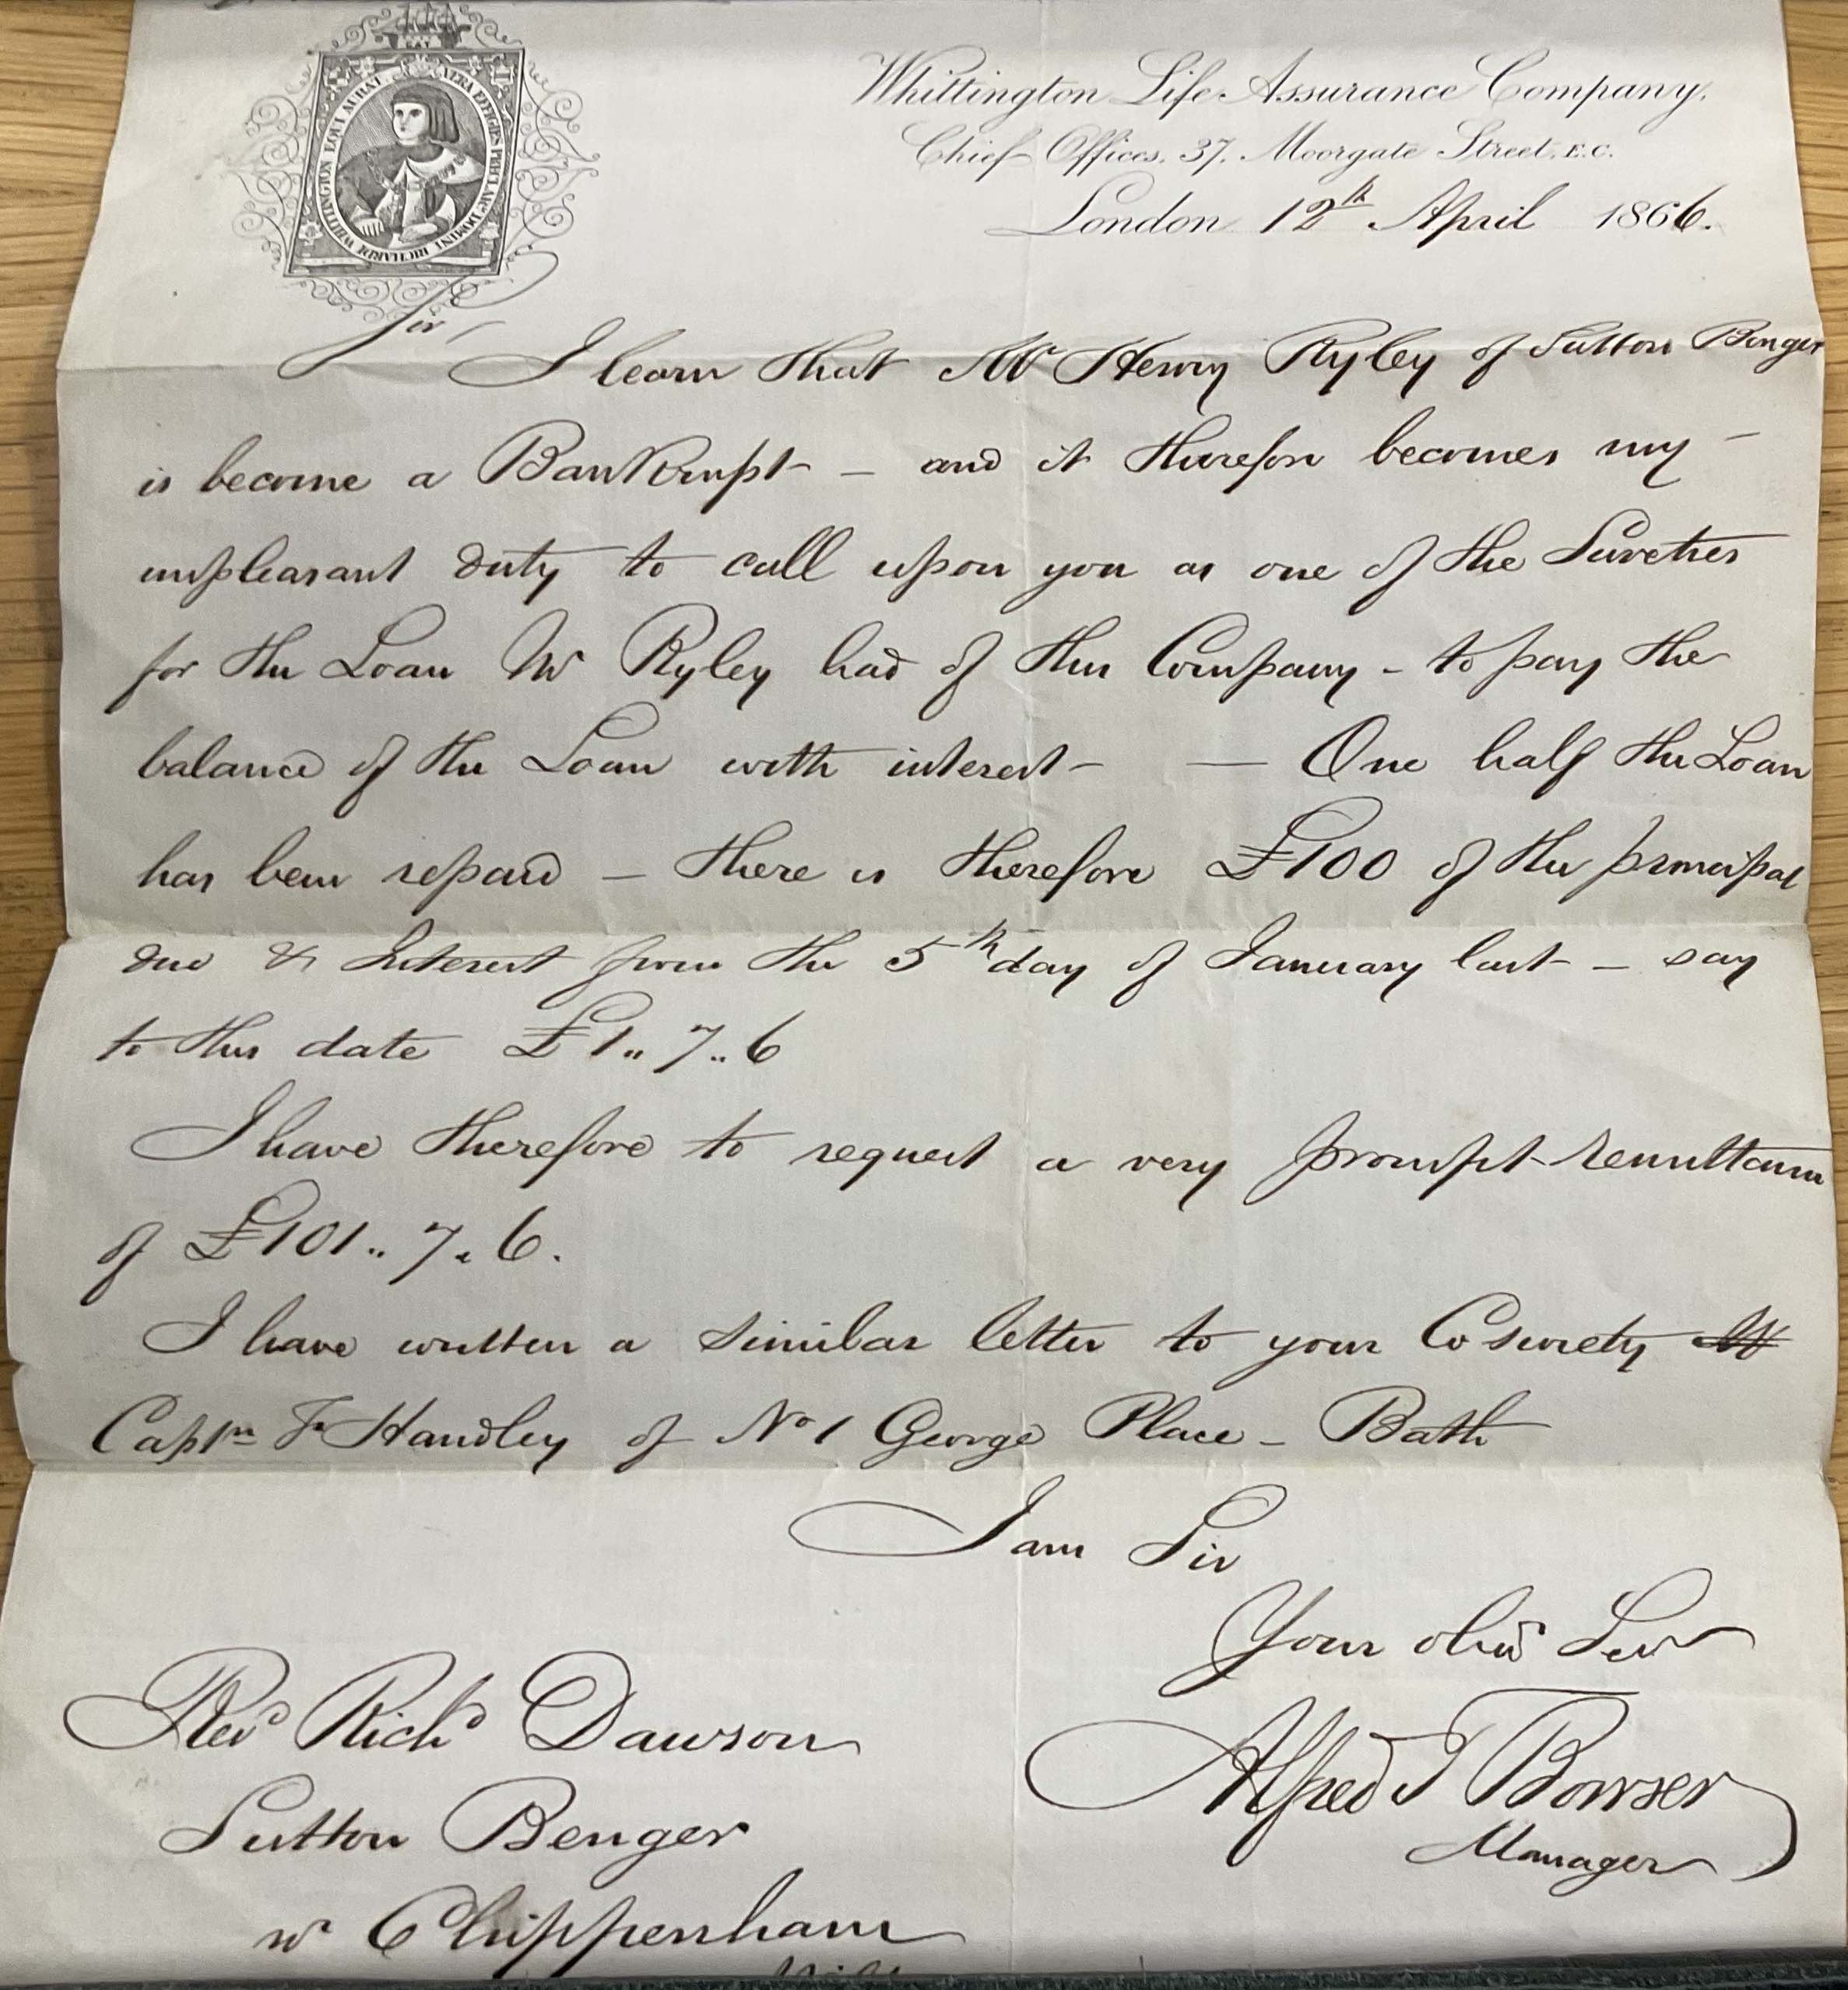 VERA EFFIGIES PRECLARI DOMINI RICHARDI WHITTINGTON EQUI AURAT
Whittington Life Assurance Company.
Chief Offices, 37, Moorgate Street, E.C.
London 12th April 1866.
Sir
I learn that Mr Henry Ryley of Sutton Benger
is become a Bankrupt – and it therefore becomes my –
unpleasant duty to call upon you as one of the Sureties
for the Loan Mr Ryley had of this Company – to pay the
balance of the Loan with interest – — One half the Loan
has been repaid – there is therefore £100 of the principal
due & Interest from the 5th day of January last – say
to this date £1.. 7.. 6
I have therefore to request a very prompt remittance
of £101.. 7.. 6.
I have written a similar letter to your Co surety Mr
Captn Fr Handley of No 1 George Place – Bath
I am Sir
Your obt Serv
Alfred T Bowser
Manager
Revd Richd Dawson
Sutton Benger
nr Chippenham